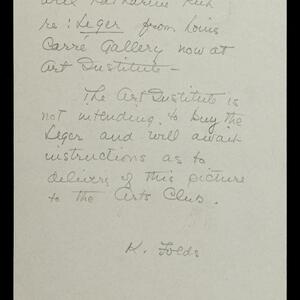 and Katharine Kuh
re: Leger from Louis
Carré Gallery now at
Art Institute —
The Art Institute is
not intending to buy the
Leger and will await
instructions as to
delivery of this picture
to the Arts Club.
K. Folds